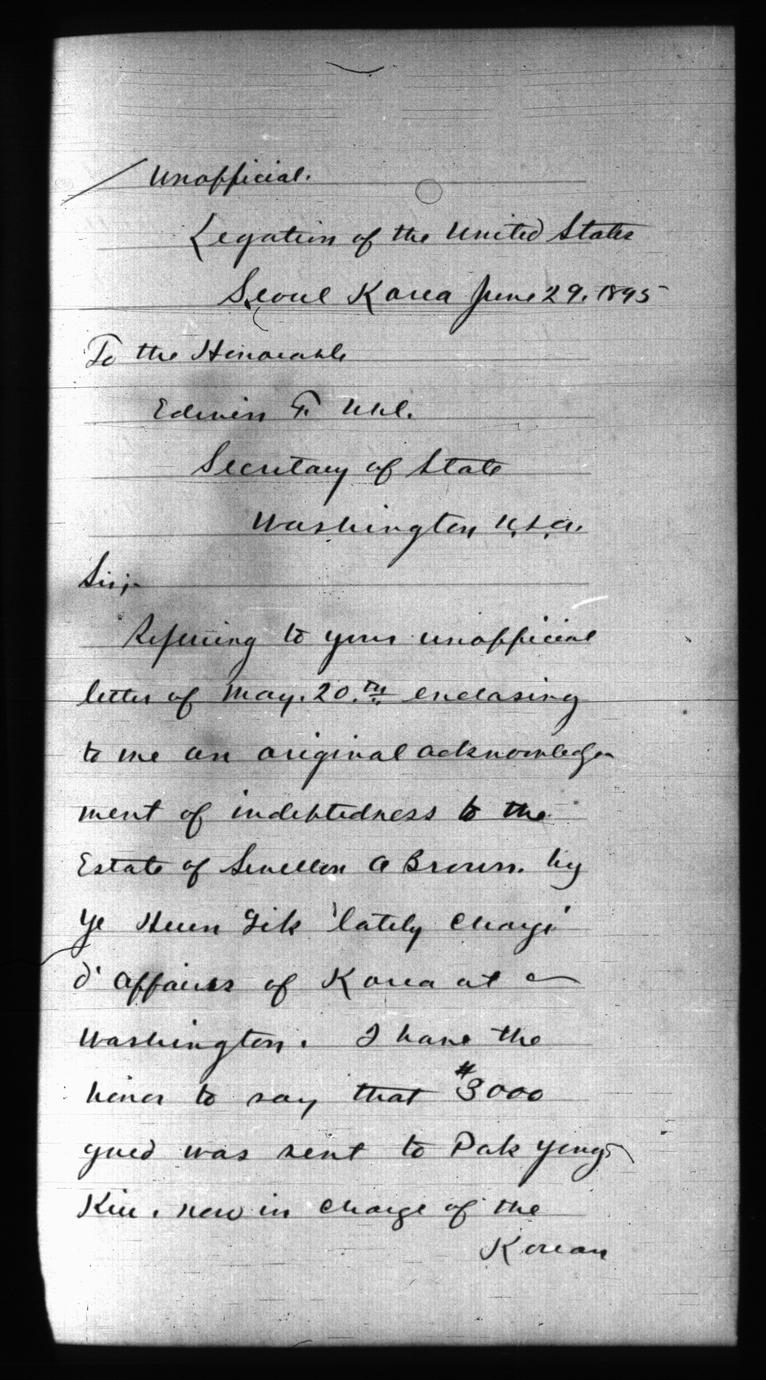 Unofficial.
Legation of the United States
Seoul Korea June 29. 1895
To the Honorable
Edwin F. Uhl.
Secretary of State
Washington U.S.A.
Sir;-
Referring to your unofficial
letter of May. 20.th enclosing
to me an original acknowledge
ment of indebtedness to the
Estate of Sevellon A Brown. by
Ye Heun Jik lately Chargé
d'Affaires of Korea at
Washington. I have the
honor to say that $3000
gued was sent to Pak Yong
Kiu. now in charge of the
Korean